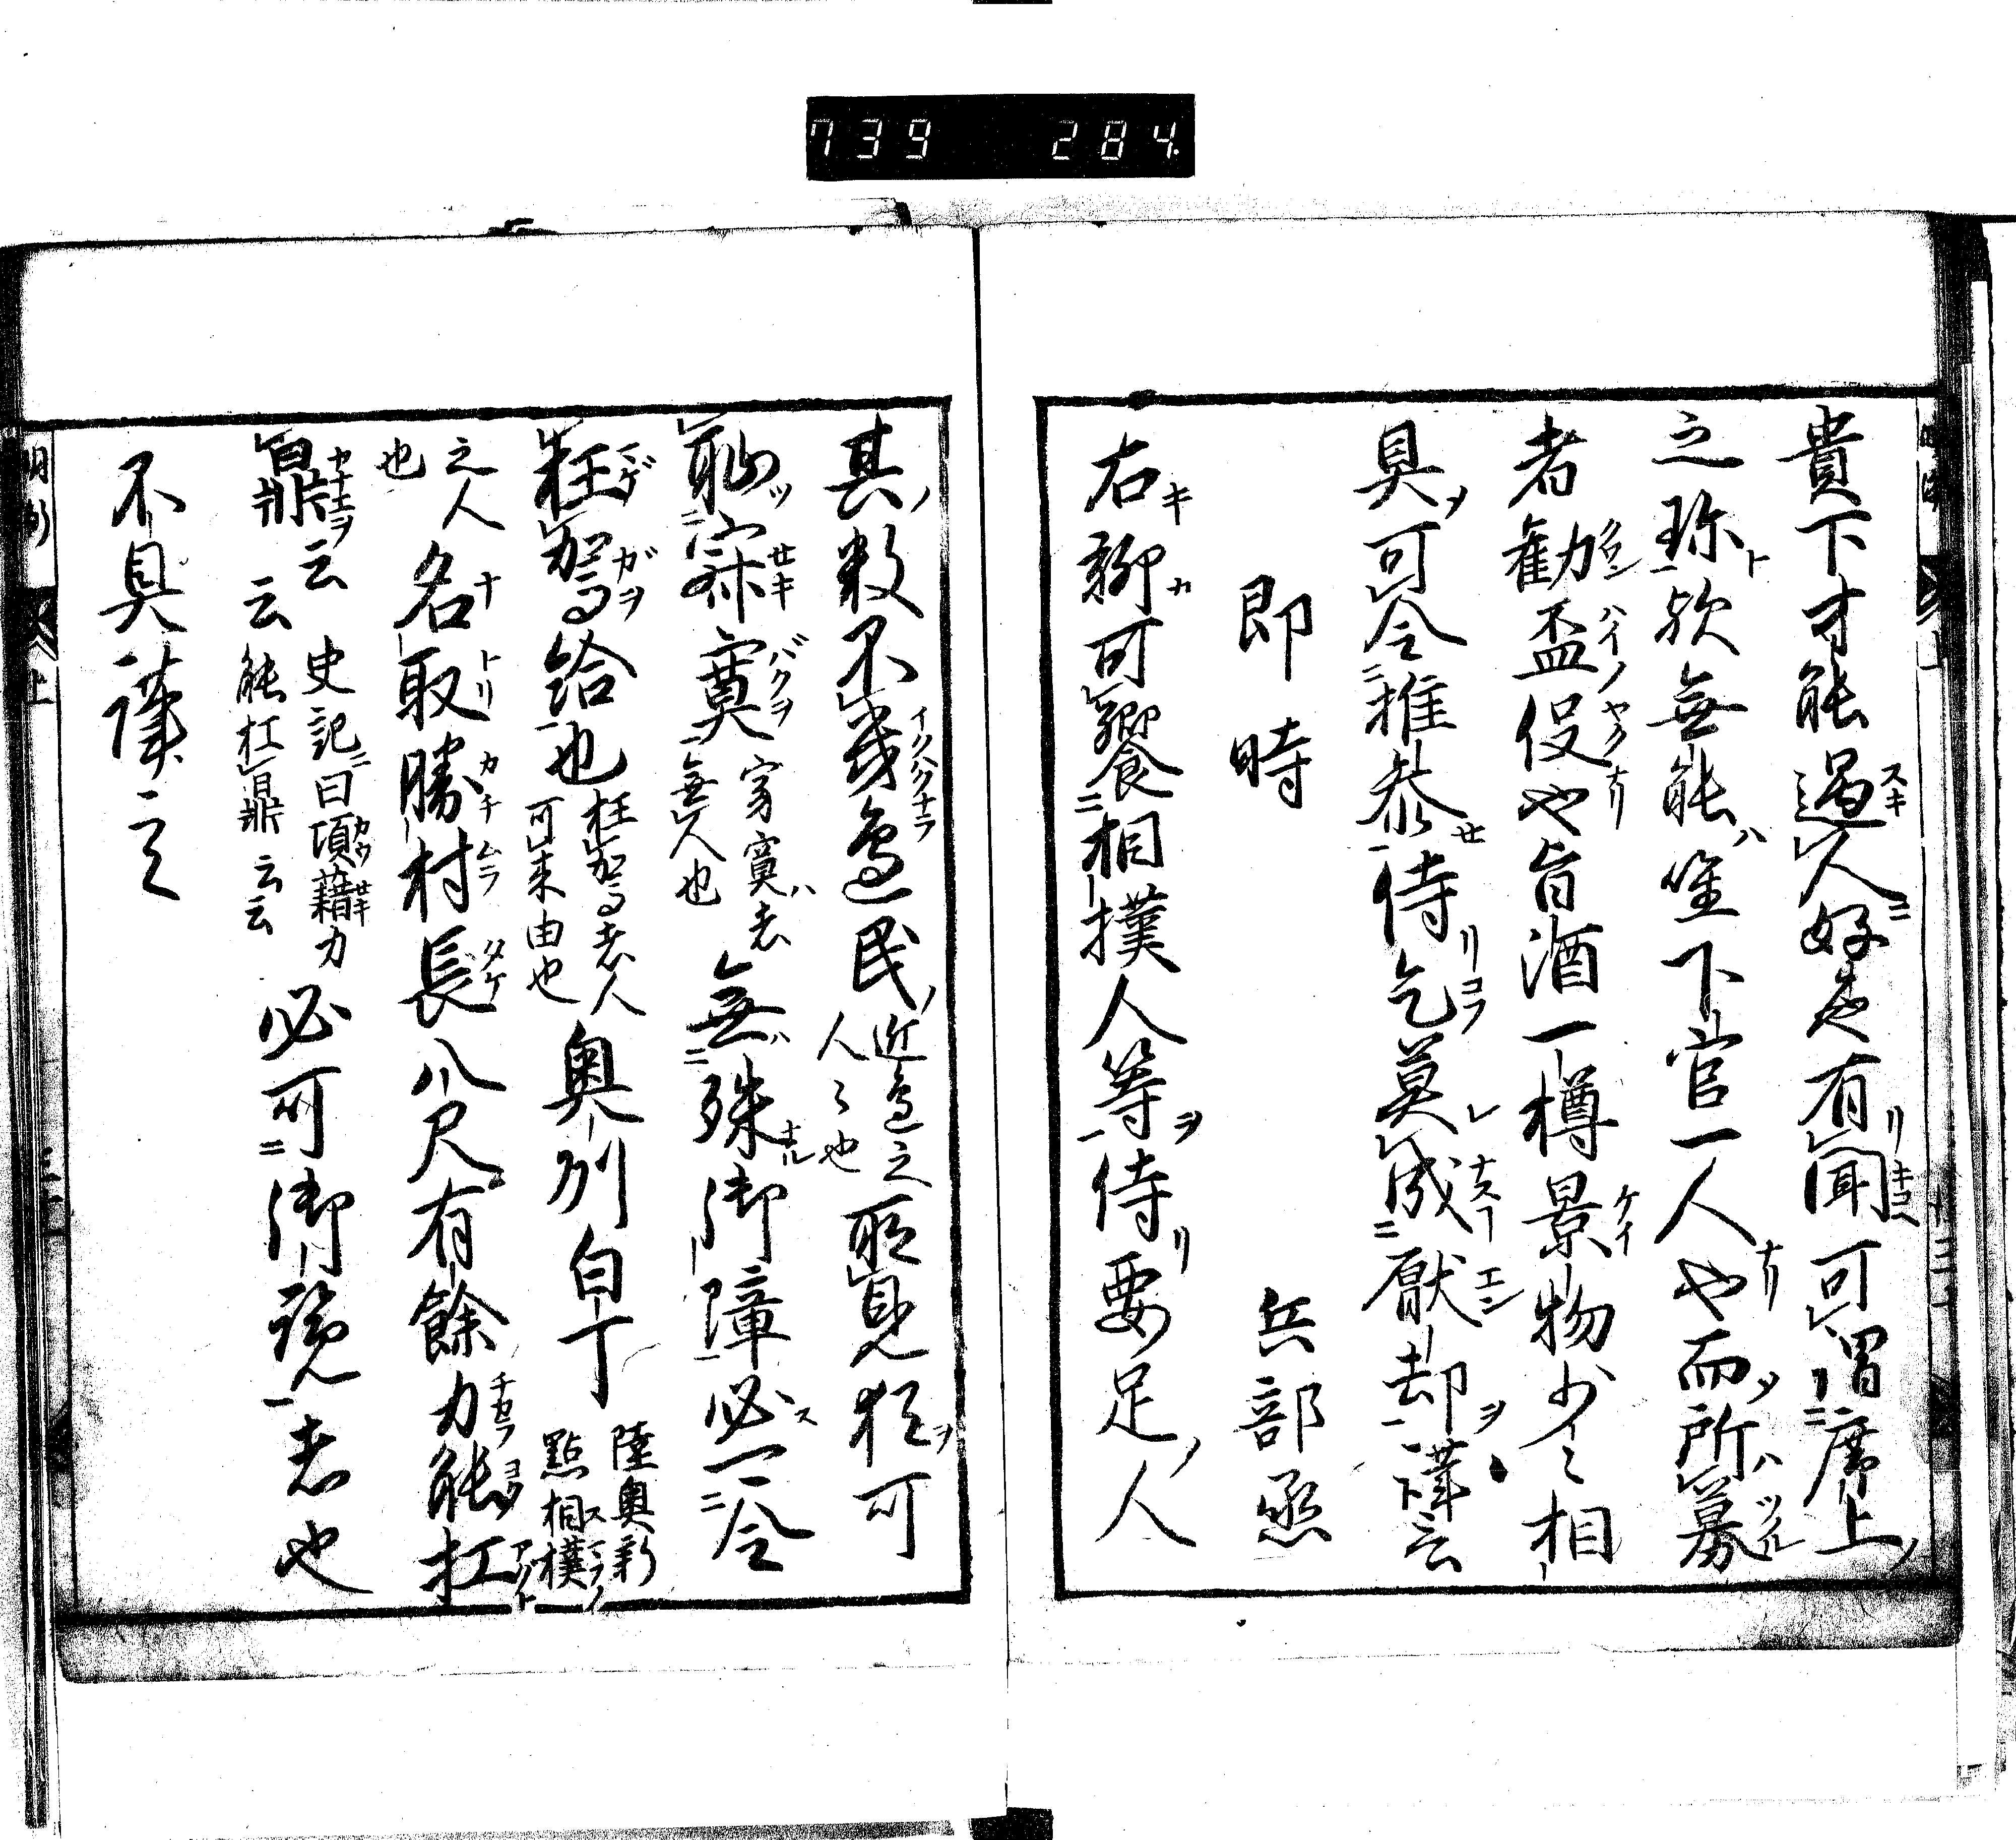 739 284
貴下才能過人好楚有聞可謂席上
之珎欤無能唯下官一人也而所募
者勧盃役也旨酒一樽景物少々相
具可令推参侍乞莫成厭却謹言
即時 兵部丞
右聊可饗相撲人等侍要足人
其数不幾邊民近邊之人々也取見犹可
恥寂寞家寞者無人也無殊御障必一令
枉駕給也枉駕者人可来由也奥州白丁陸奥新點相撲
之人也名取勝村長八尺有餘力能扛
鼎云云史記曰項藉力能扛鼎云云必可御覧者也
不具謹言